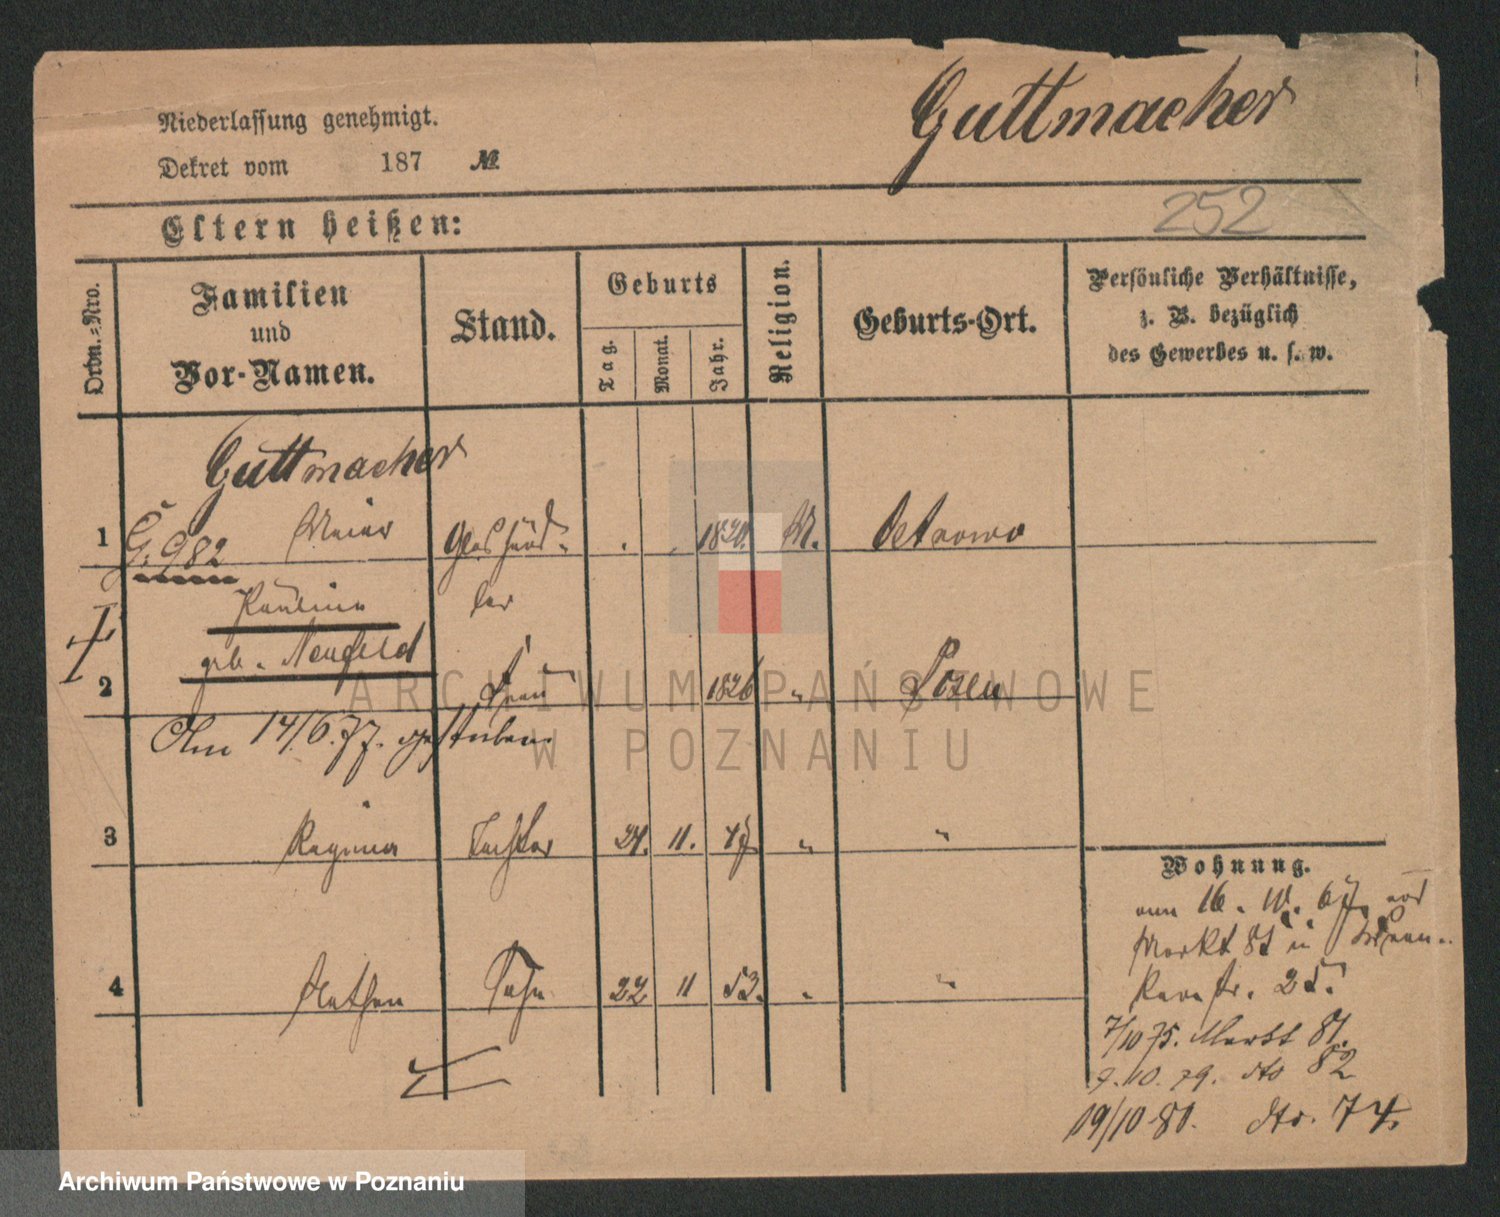 Guttmacher
Niederlassung genehmigt.
Dekret vom 187 №
252
Eltern heißen:
Ordn.=Nro.
Familien
und
Vor-Namen.
Stand.
Geburts
Tag.
Monat.
Jahr.
Religion.
Geburts-Ort.
Persönliche Verhältnisse,
z. B. bezüglich
des Gewerbes u. s. w.
Guttmacher
1 G. 982 Meier Glashänd- 1820. M. Ostrowo
Pauline ler
geb. Neufeld
2 Frau 1826 " Posen
Am 14/6.77. gestorben
3 Regina Tochter 24. 11. 47 " "
Wohnung.
vom 16. 10. 67
Markt 81 in
4 Nathan Sohn 22 11 53. " "
str. 25.
7/10 75. Markt 81.
9.10.79. dto 82
19/10 81. dto. 74.
ARCHIWUM PAŃSTWOWE
W POZNANIU
Archiwum Państwowe w Poznaniu